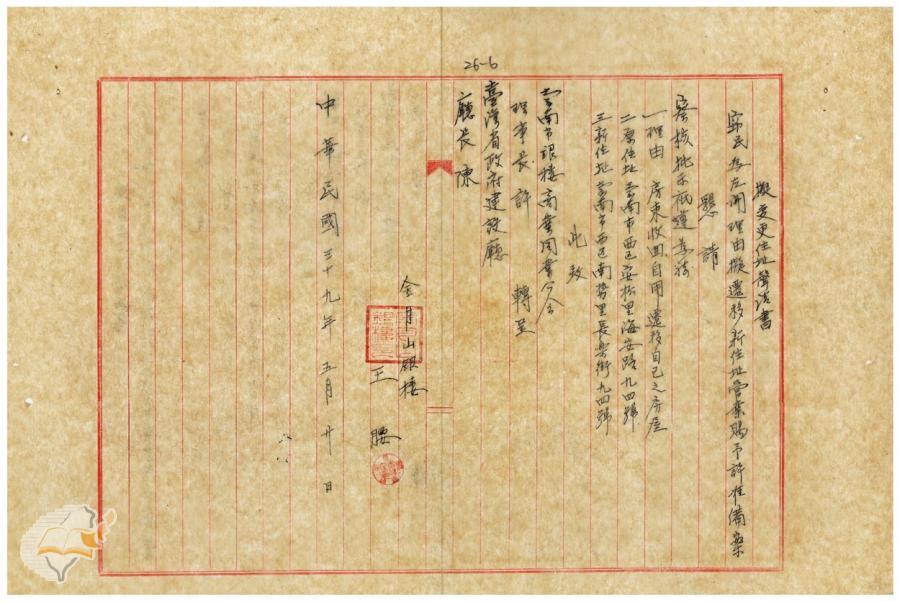 26-6
擬變更住址聲請書
窃民為左開理由擬遷移新住址營業賜予許准備案
懇請
察核批示祇遵為禱
一理由 房東收回自用遷移自己之房屋
二原住址 台南市西區安松里海安路九四號
三新住址 台南市西區南勢里長樂街九四號
此致
台南市銀樓商業同業公會
理事長 許 轉呈
臺灣省政府建設廳
廳長 陳
金月山銀樓
王 腰
中華民國三十九年 五月 廿 日